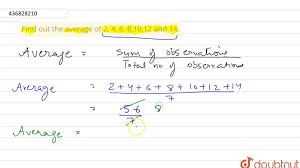 436828210
Find out the average of 2, 4, 6, 8,10,12 and 14.
Average = Sum of observations
Total no of observations
Average = 2+4+6+8+10+12+14
7
= 56 8
7
Average =
doubtnut